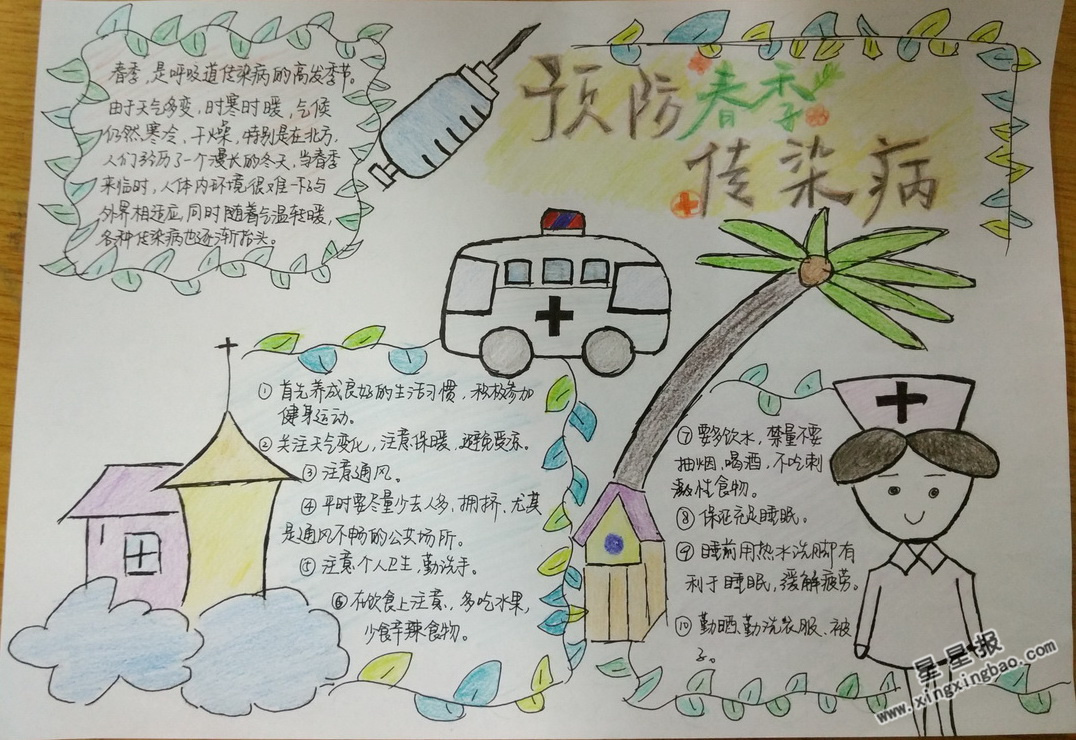 预防春季
传染病
春季,是呼吸道传染病的高发季节。
由于天气多变,时寒时暖,气候
仍然寒冷,干燥,特别是在北方,
人们经历了一个漫长的冬天,当春季
来临时,人体内环境很难一下与
外界相适应,同时随着气温转暖,
各种传染病也逐渐抬头。
① 首先养成良好的生活习惯,积极参加
健身运动。
② 关注天气变化,注意保暖,避免受凉。
③ 注意通风。
④ 平时要尽量少去人多,拥挤,尤其
是通风不畅的公共场所。
⑤ 注意个人卫生,勤洗手。
⑥ 在饮食上注意,多吃水果,
少食辛辣食物。
⑦ 要多饮水,禁量不要
抽烟、喝酒,不吃刺
激性食物。
⑧ 保证充足睡眠。
⑨ 睡前用热水洗脚有
利于睡眠,缓解疲劳。
⑩ 勤晒、勤洗衣服、被
子。
星星报
www.xingxingbao.com